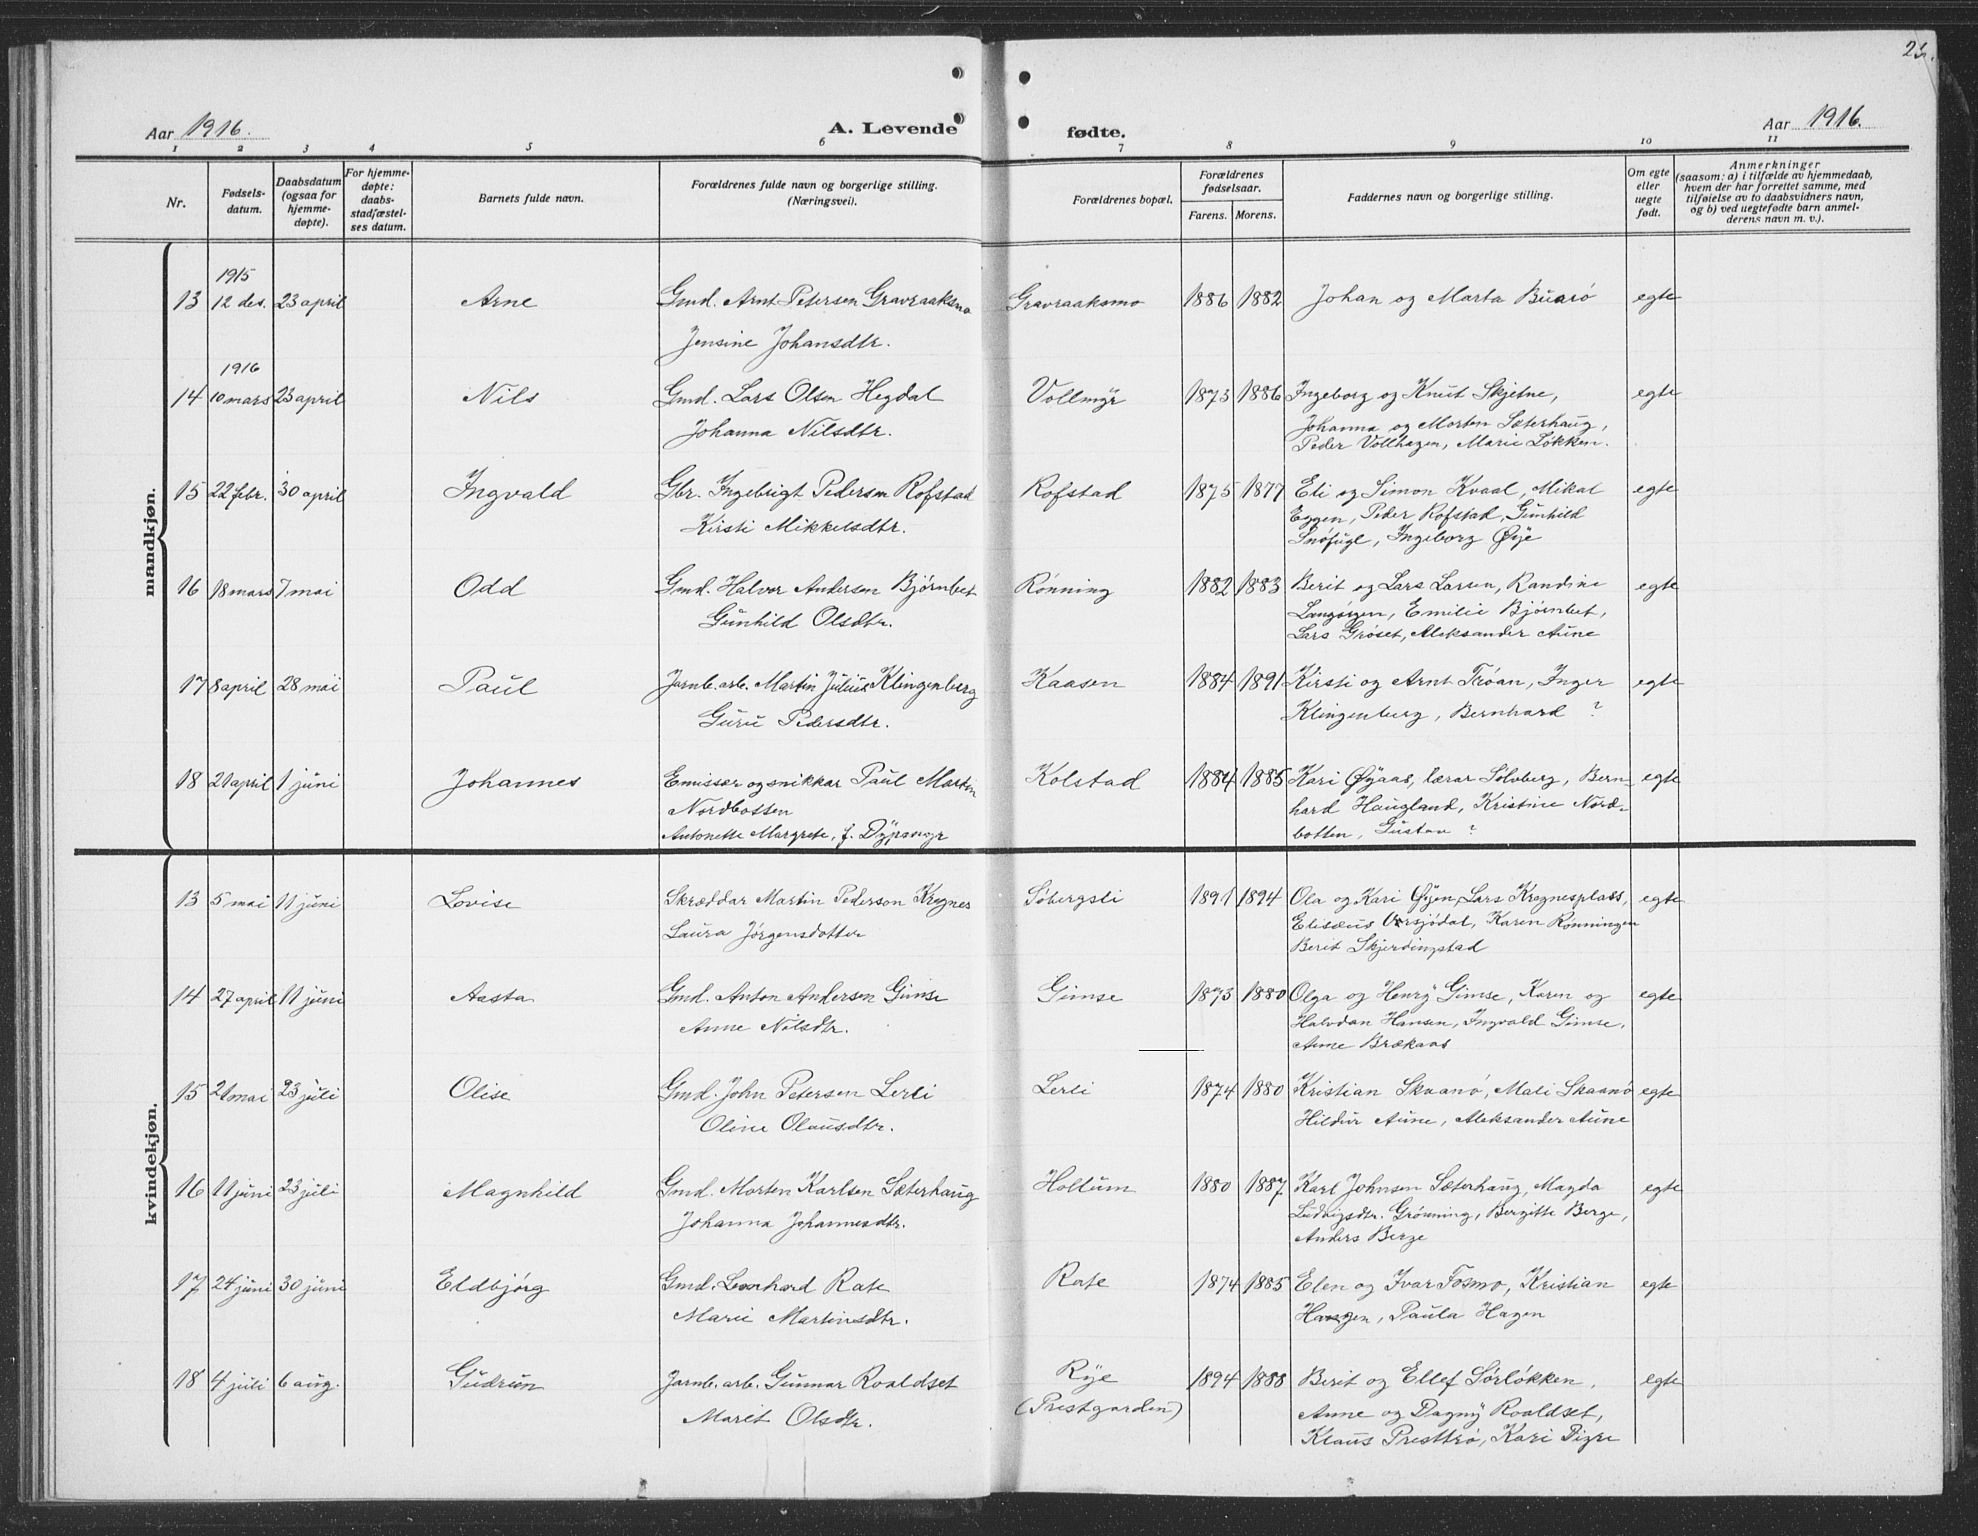 23.
Aar 1916.
A. Levende fødte.
Aar 1916.
1 2 3 4 5 6 7 8 9 10 11
Nr.
Fødsels-
datum.
Daabsdatum
(ogsaa for
hjemme-
døpte).
For hjemme-
døpte:
daabs-
stadfæstel-
ses datum.
Barnets fulde navn.
Forældrenes fulde navn og borgerlige stilling.
(Næringsvei).
Forældrenes bopæl.
Forældrenes
fødselsaar.
Farens. Morens.
Faddernes navn og borgerlige stilling.
Om egte
eller
uegte
født.
Anmerkninger
(saasom: a) i tilfælde av hjemmedaab,
hvem der har forrettet samme, med
tilføielse av to daabsvidners navn,
og b) ved uegtefødte barn anmel-
derens navn m. v.).
mandkjøn.
1915
13 12 des. 23 april Arne Gmd. Arnt Petersen Gravraaksmo Gravraaksmo 1886 1882 Johan og Marta Buarø egte
Jensine Johansdtr.
1916
14 10 mars 23 april Nils Gmd. Lars Olsen Hegdal Vollmyr 1873 1886 Ingeborg og Knut Skjetne, egte
Johanna Nilsdtr. Johanna og Morten Sæterhaug,
Peder Vollhagen, Marie Løkken.
15 22 febr. 30 april Ingvald Gbr. Ingebrigt Pedersen Rofstad Rofstad 1875 1877 Eli og Simon Kvaal, Mikal egte
Kirsti Mikkelsdtr. Eggen, Peder Rofstad, Gunhild
Snøfugl, Ingeborg Øye
16 18 mars 7 mai Odd Gmd. Halvor Andersen Bjørnbet Rønning 1882 1883 Berit og Lars Larsen, Randine egte
Gunhild Olsdtr. Langørgen, Emilie Bjørnbet,
Lars Grøset, Aleksander Aune
17 8 april 28 mai Paul Jarnb. arb. Martin Julius Klingenberg Kaasen 1884 1891 Kirsti og Arnt Trøan, Inger egte
Guru Pedersdtr. Klingenberg, Bernhard ?
18 21 april 1 juni Johannes Emissær og snikkar Paul Martin Kolstad 1884 1885 Kari Øyaas, lærar Sølvberg, Bern- egte
Nordbotten hard Haugland, Kristine Nord-
Antonette Margrete, f. Dypsmyr botten, Gustav ?
kvindekjøn.
13 5 mai 11 juni Lovise Skræddar Martin Pederson Krognes Søbergsli 1891 1894 Ola og Kari Øyen, Lars Krognesplads, egte
Laura Jørgensdotter Elisæus Vorsjødal, Karen Rønningen
Berit Skjerdingstad
14 27 april 11 juni Aasta Gmd. Anton Andersen Gimse Gimse 1873 1880 Olga og Henry Gimse, Karen og egte
Anne Nilsdtr. Halvdan Hansen, Ingvald Gimse,
Anne Brækaas
15 21 mai 23 juli Olise Gmd. John Petersen Lerli Lerli 1874 1880 Kristian Skaanø, Mali Skaanø egte
Oline Olausdtr. Hildur Aune, Aleksander Aune
16 11 juni 23 juli Magnhild Gmd. Morten Karlsen Sæterhaug Hollum 1880 1887 Karl Johnsen Sæterhaug, Magda egte
Johanna Johannesdtr. Ludvigsdtr. Grønning, Bergitte Berge,
Anders Berge
17 24 juni 30 juni Eldbjørg Gmd. Leonhard Rate Rate 1874 1885 Elen og Ivar Fosmo, Kristian egte
Marie Martinsdtr. Haugen, Paula Hagen
18 4 juli 6 aug. Gudrun Jarnb. arb. Gunnar Roaldset Rye 1894 1888 Berit og Ellef Sørløkken, egte
Marit Olsdtr. (Prestgarden) Anne og Dagny Roaldset,
Klaus Presttrø, Kari Digre